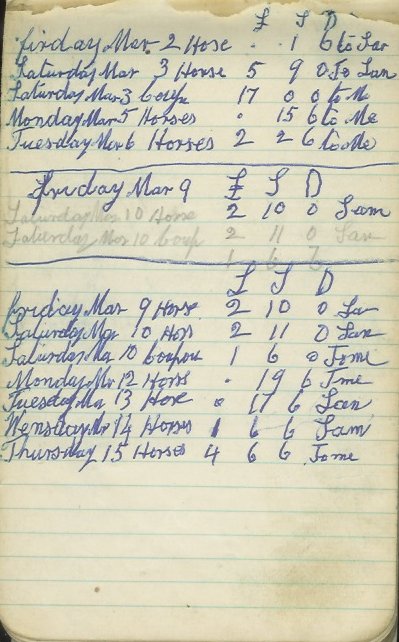 £ S D
firday Mar 2 Hose . 1 6 to Sar
Saturday Mar 3 Horse 5 9 0 To San
Saturday Mar 3 Coup 17 0 0 to Me
Monday Mar 5 Horses . 15 6 to Me
Tuesday Mar 6 Horses 2 2 6 to Me
Friday Mar 9 £ S D
2 10 0 Sam
Saturday Mar 10 Horse
Saturday Mar 10 Coup 2 11 0 San
1 6
£ S D
Friday Mar 9 Horse 2 10 0
Saturday Mar 10 Hors 2 11 0 San
Saturday Ma 10 1 6 0 To me
Monday Mr 12 Horse . 19 6 T me
Tuesday Ma 13 Hore . 17 6 San
Wensday Mr 14 Horses 1 6 6 Sam
Thursday 15 Horses 4 6 6 To me